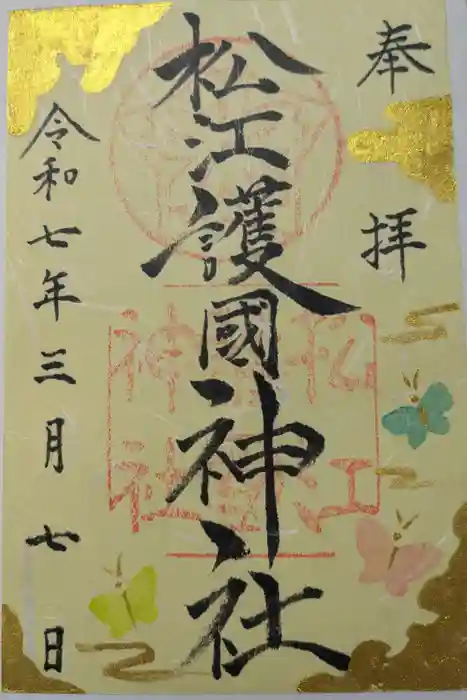 奉拝
松江護國神社
令和七年三月七日
松江
護國
神社